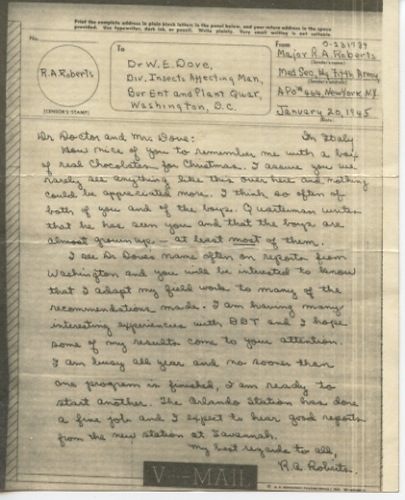 Print the complete address in plain block letters in the panel below, and your return address in the space
provided. Use typewriter, dark ink, or pencil. Write plainly. Very small writing is not suitable.
No.
R.A. Roberts
(CENSOR'S STAMP)
To
Dr W. E. Dove,
Div. Insects Affecting Man,
Bur Ent and Plant Quar,
Washington, D.C.
From
Major R. A. Roberts
(Sender's name)
Med Sec, Hq Fifth Army,
(Sender's address)
APO #464, New York N.Y.
January 20, 1945
(Date)
Dr Doctor and Mrs Dove: In Italy
How nice of you to remember me with a box
of real Chocolates for Christmas. I assure you we
rarely see anything like this over here and nothing
could be appreciated more. I think so often of
both of you and of the boys. Quarterman writes
that he has seen you and that the boys are
almost grown up – at least most of them.
I see Dr Doves name often on reports from
Washington and you will be interested to know
that I adapt my field work to many of the
recommendations made. I am having many
interesting experiences with DDT and I hope
some of my results come to your attention.
I am busy all year and no sooner than
one program is finished, I am ready to
start another. The Orlando Station has done
a fine job and I expect to hear good reports
from the new station at Savannah.
My best regards to all,
R. A. Roberts.
V···—MAIL